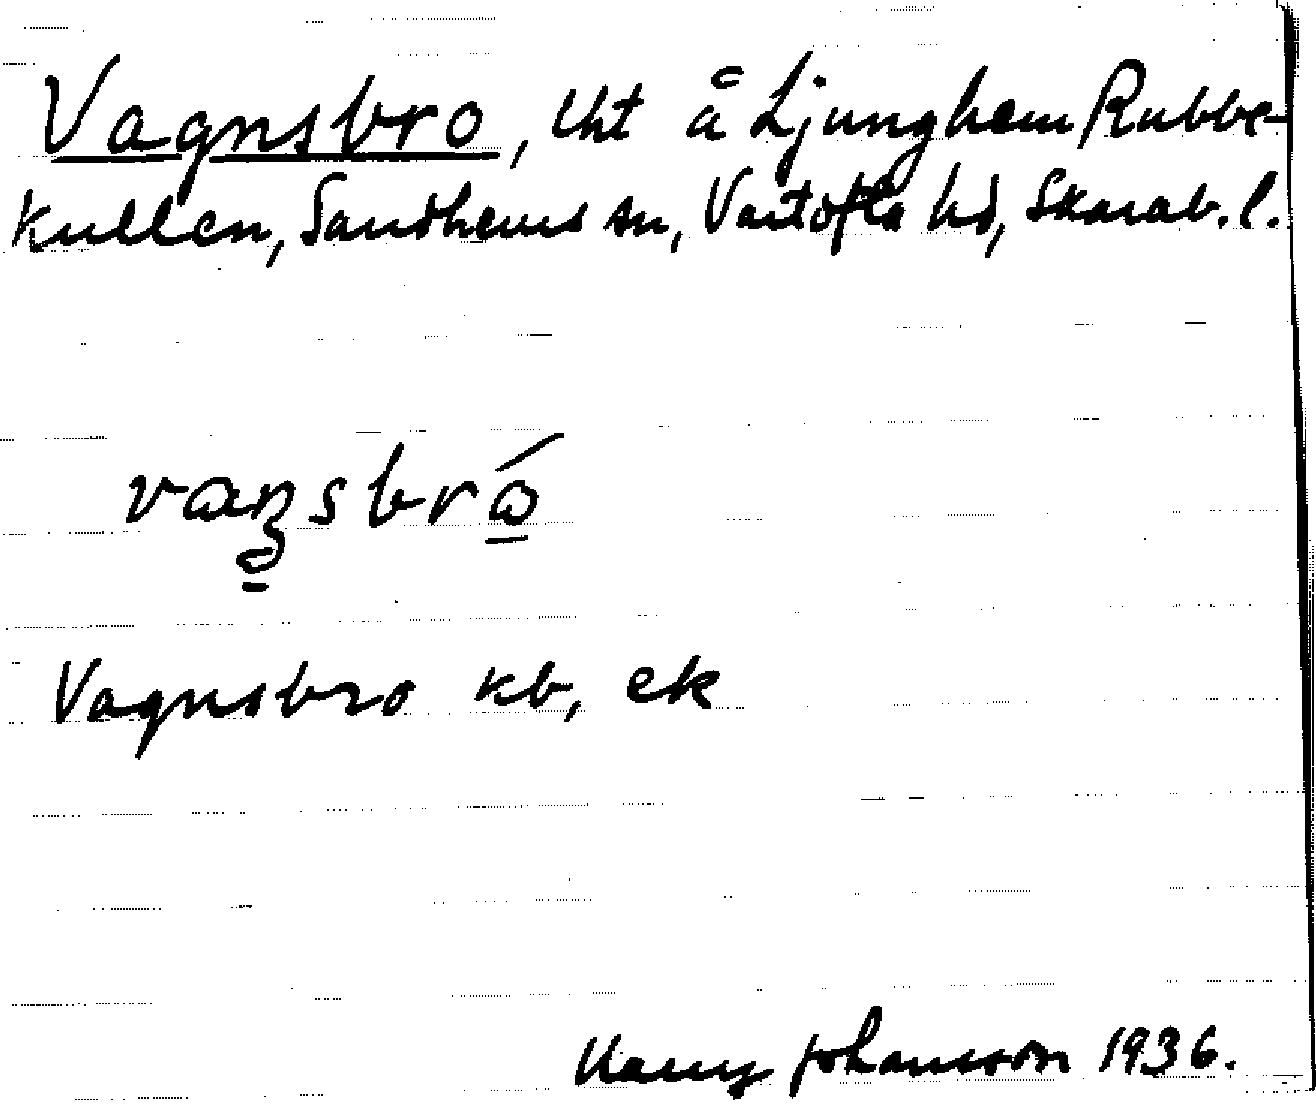 Vagnsbro, lht å Ljunghem Rubbe-
kullen, Sandhems sn, Vartofta hd, Skarab. l.
vaŋsbrɷ́
Vagnsbro kb, ek
Harry Johansson 1936.